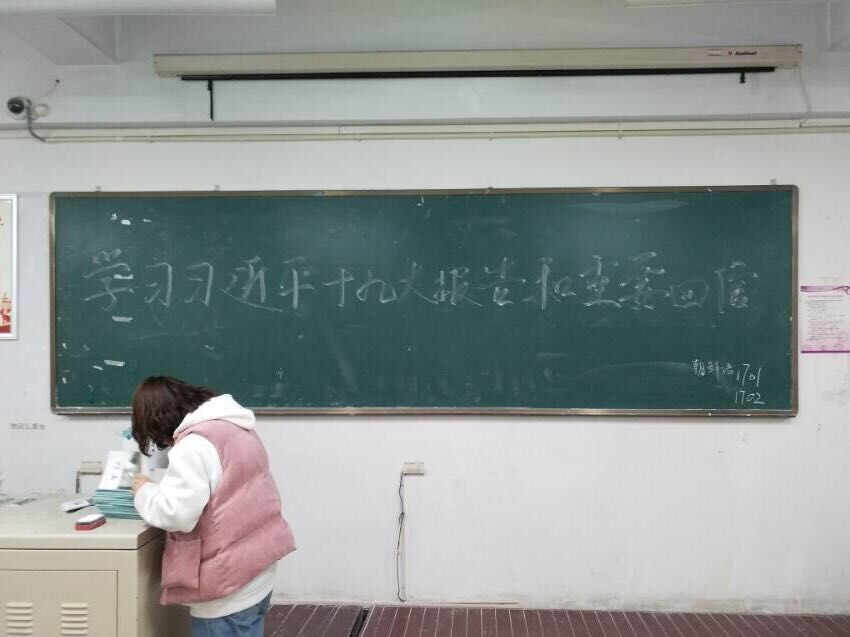 学习习近平十九大报告和重要回信
朝鲜语1701
1702